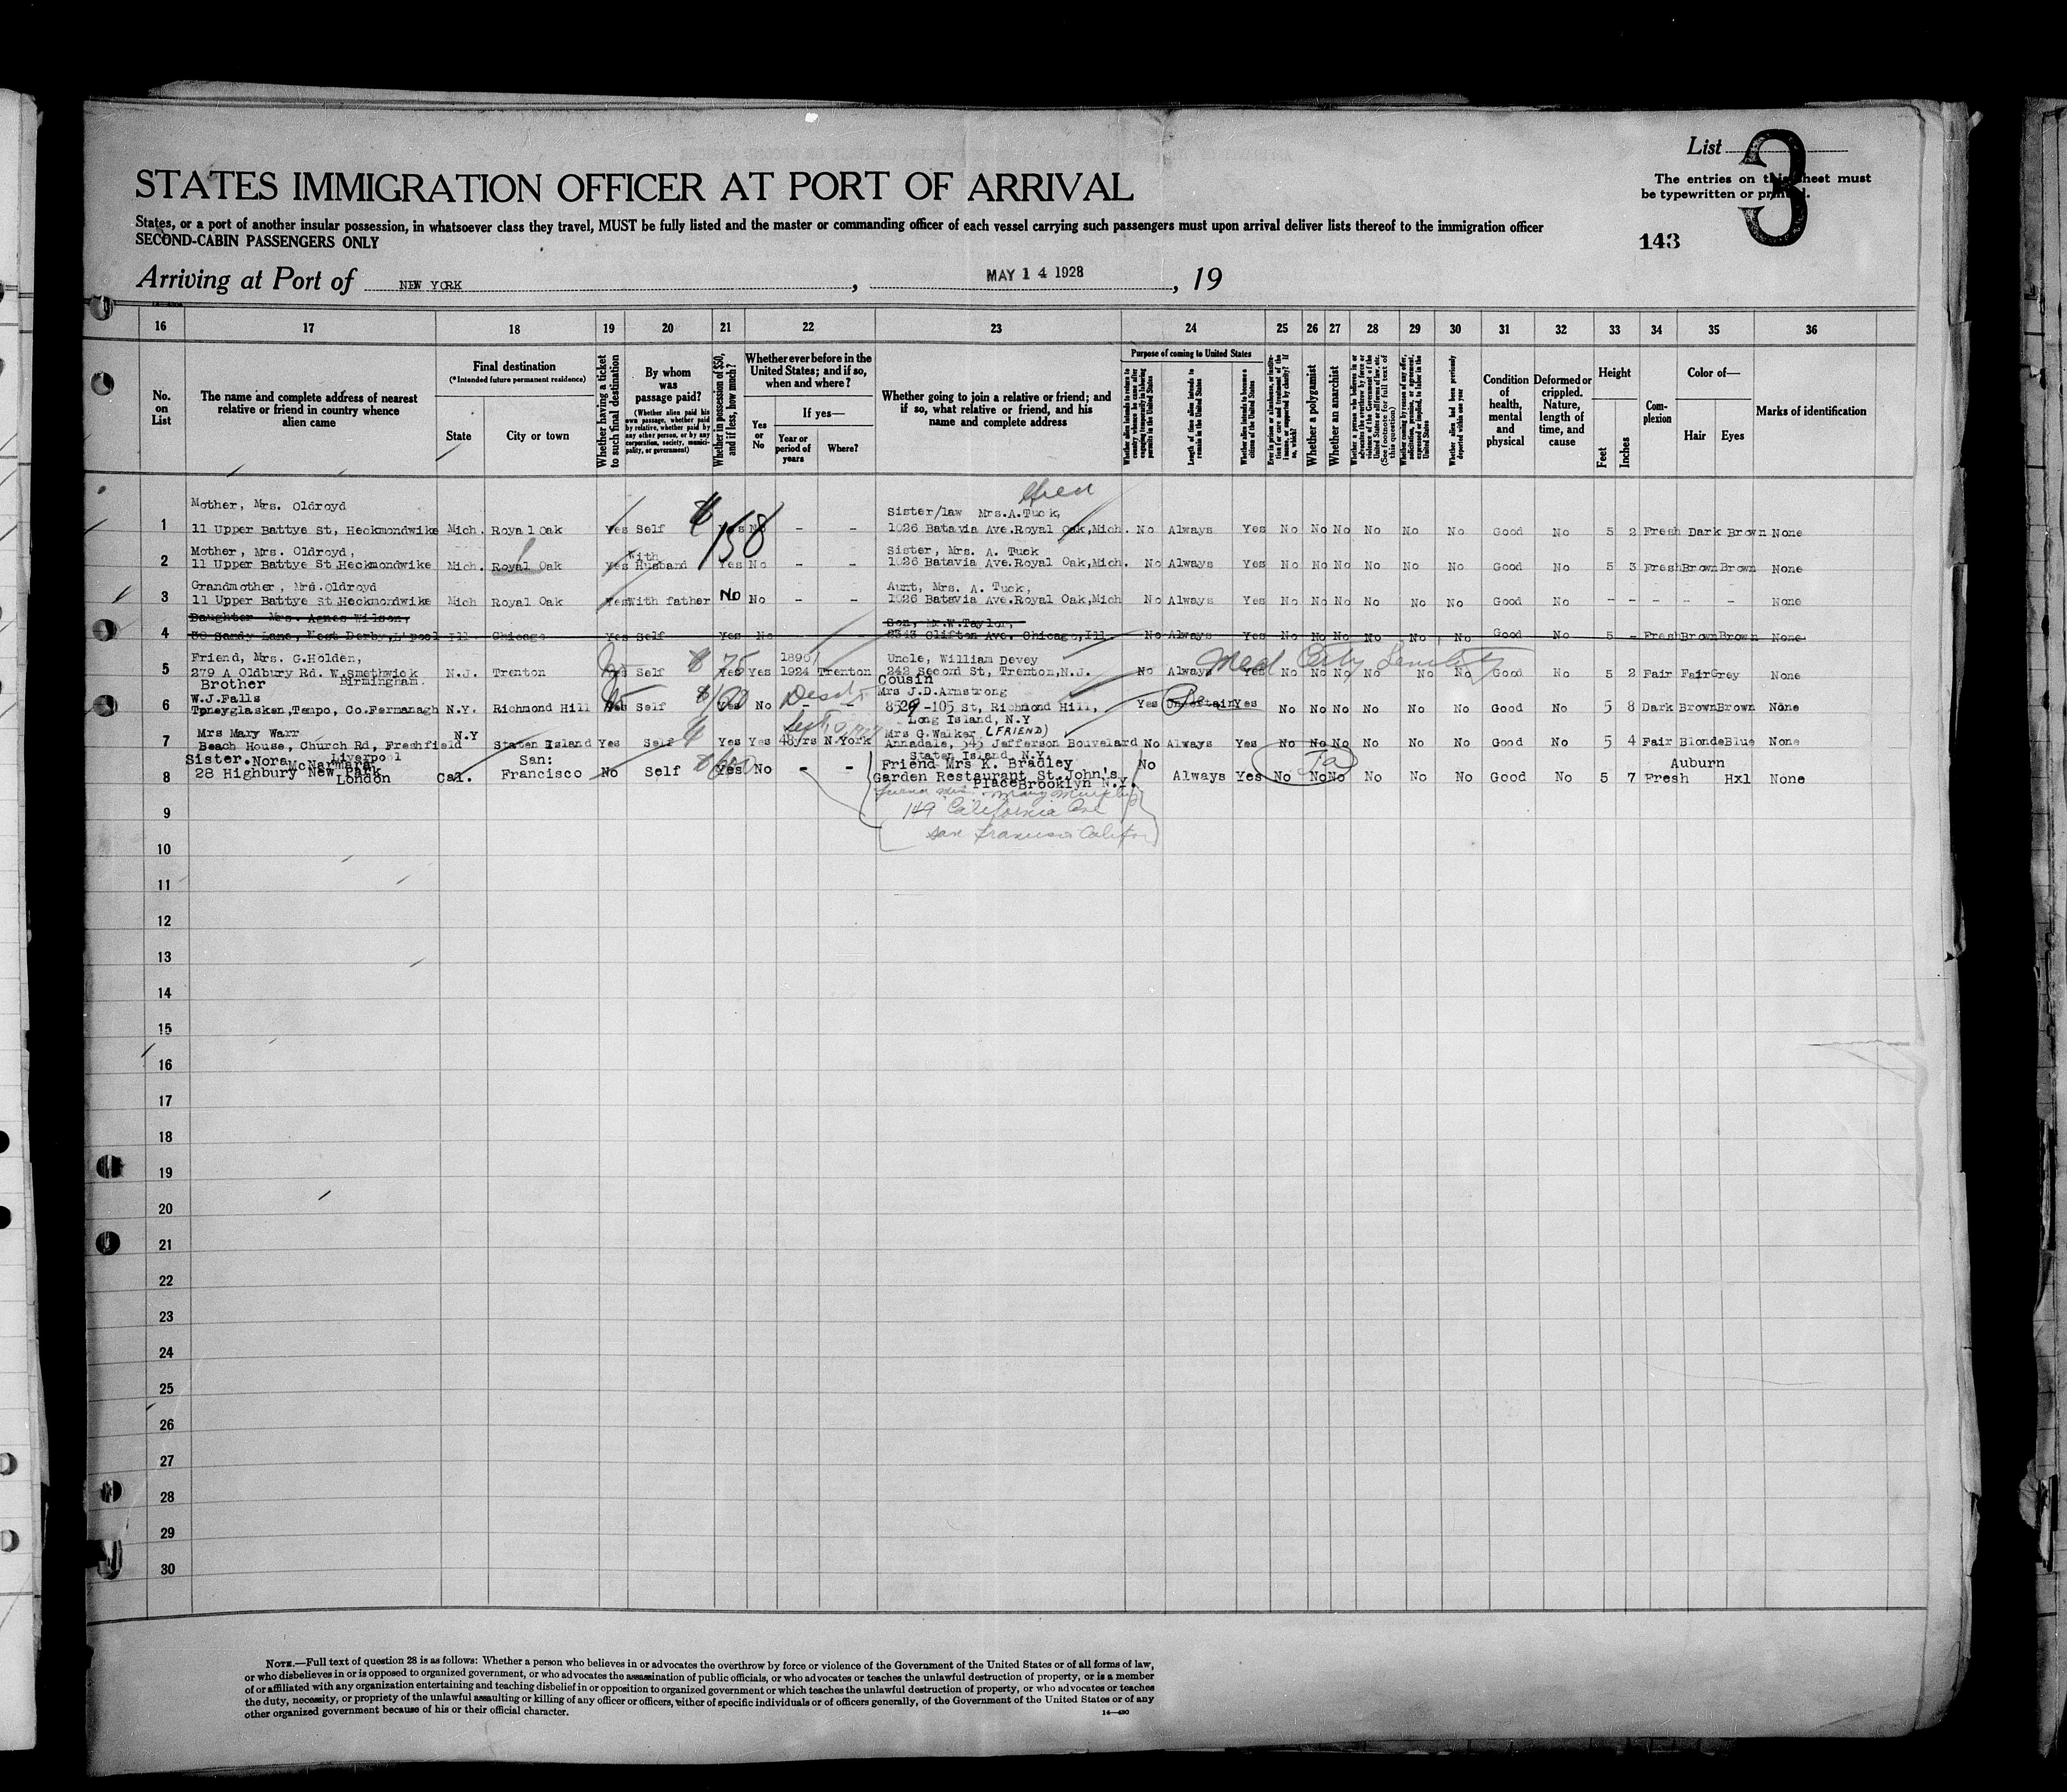 List 3
The entries on this sheet must
be typewritten or printed.
STATES IMMIGRATION OFFICER AT PORT OF ARRIVAL
States, or a port of another insular possession, in whatsoever class they travel, MUST be fully listed and the master or commanding officer of each vessel carrying such passengers must upon arrival deliver lists thereof to the immigration officer
SECOND-CABIN PASSENGERS ONLY
143
Arriving at Port of NEW YORK, MAY 14 1928, 19
16 17 18 19 20 21 22 23 24 25 26 27 28 29 30 31 32 33 34 35 36
No. on List
The name and complete address of nearest relative or friend in country whence alien came
Final destination
(*Intended future permanent residence)
State
City or town
Whether having a ticket to such final destination
By whom was passage paid?
(Whether alien paid his own passage, whether paid by relative, whether paid by any other person, or by any corporation, society, municipality, or government)
Whether in possession of $50, and if less, how much?
Whether ever before in the United States; and if so, when and where?
Yes or No
If yes—
Year or period of years
Where?
Whether going to join a relative or friend; and if so, what relative or friend, and his name and complete address
Purpose of coming to United States
Whether alien intends to return to country whence he came after engaging temporarily in laboring pursuits in the United States
Length of time alien intends to remain in the United States
Whether alien intends to become a citizen of the United States
Ever in prison or almshouse, or institution for care and treatment of the insane, or supported by charity? If so, which?
Whether a polygamist
Whether an anarchist
Whether a person who believes in or advocates the overthrow by force or violence of the Government of the United States or all forms of law, etc. (See footnote for full text of this question)
Whether coming by reason of any offer, solicitation, promise, or agreement, expressed or implied, to labor in the United States
Whether alien had been previously deported within one year
Condition of health, mental and physical
Deformed or crippled. Nature, length of time, and cause
Height
Feet
Inches
Complexion
Color of—
Hair
Eyes
Marks of identification
Mother, Mrs. Oldroyd Sister/law Mrs.A.Tuck,
1 11 Upper Battye St, Heckmondwike Mich. Royal Oak Yes Self $158 Yes No - - 1026 Batavia Ave.Royal Oak,Mich. No Always Yes No No No No No No Good No 5 2 Fresh Dark Brown None
Mother, Mrs. Oldroyd, With Sister, Mrs. A. Tuck
2 11 Upper Battye St.Heckmondwike Mich. Royal Oak Yes Husband Yes No - - 1026 Batavia Ave.Royal Oak,Mich. No Always Yes No No No No No No Good No 5 3 Fresh Brown Brown None
Grandmother, Mrs.Oldroyd Aunt, Mrs. A. Tuck,
3 11 Upper Battye St.Heckmondwike Mich Royal Oak Yes With father No No - - 1026 Batavia Ave.Royal Oak,Mich No Always Yes No No No No No No Good No - - - - - None
Daughter Mrs. Agnes Wilson, Son, Mr.W.Taylor,
4 38 Sandy Lane, West Derby,L'pool Ill. Chicago Yes Self Yes No - - 2343 Clifton Ave. Chicago,Ill No Always Yes No No No No No No Good No 5 - Fresh Brown Brown None
Friend, Mrs. G.Holden, 1890/ Uncle, William Devey
5 279 A Oldbury Rd. W.Smethwick N.J. Trenton Yes Self $75 Yes Yes 1924 Trenton 242 Second St, Trenton,N.J. No Always Yes No No No No No No Good No 5 2 Fair Fair Grey None
Birmingham.
Brother Cousin
W.J.Falls Mrs J.D.Armstrong
6 Toneyglasken,Tempo, Co.Fermanagh N.Y. Richmond Hill Yes Self $100 Yes No - - 8529 -105 St, Richmond Hill, Yes Uncertain Yes No No No No No No Good No 5 8 Dark Brown Brown None
Long Island, N.Y
Mrs Mary Warr N.Y Mrs G.Walker (FRIEND)
7 Beach House, Church Rd, Freshfield Staten Island Yes Self Yes Yes 48yrs N.York Annadale, 545 Jefferson Bouvelard No Always Yes No No No No No No Good No 5 4 Fair Blonde Blue None
Liverpool Staten Island, N.Y.
Sister.Nora McNarmara San: Friend Mrs K. Bradley No Auburn
8 28 Highbury New Park Cal. Francisco No Self Yes No - - Garden Restaurant St.John's Always Yes No No No No No No Good No 5 7 Fresh Hxl None
London Place Brooklyn N.Y.
149 California Ave
San Francisco Califor
9
10
11
12
13
14
15
16
17
18
19
20
21
22
23
24
25
26
27
28
29
30
NOTE.—Full text of question 28 is as follows: Whether a person who believes in or advocates the overthrow by force or violence of the Government of the United States or of all forms of law,
or who disbelieves in or is opposed to organized government, or who advocates the assassination of public officials, or who advocates or teaches the unlawful destruction of property, or is a member
of or affiliated with any organization entertaining and teaching disbelief in or opposition to organized government or which teaches the unlawful destruction of property, or who advocates or teaches
the duty, necessity, or propriety of the unlawful assaulting or killing of any officer or officers, either of specific individuals or of officers generally, of the Government of the United States or of any
other organized government because of his or their official character.
14—430